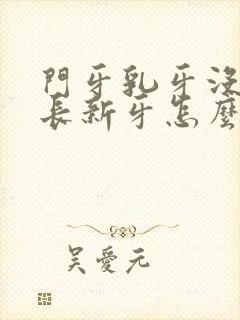 門牙乳牙沒
長新牙怎麼
吳愛元